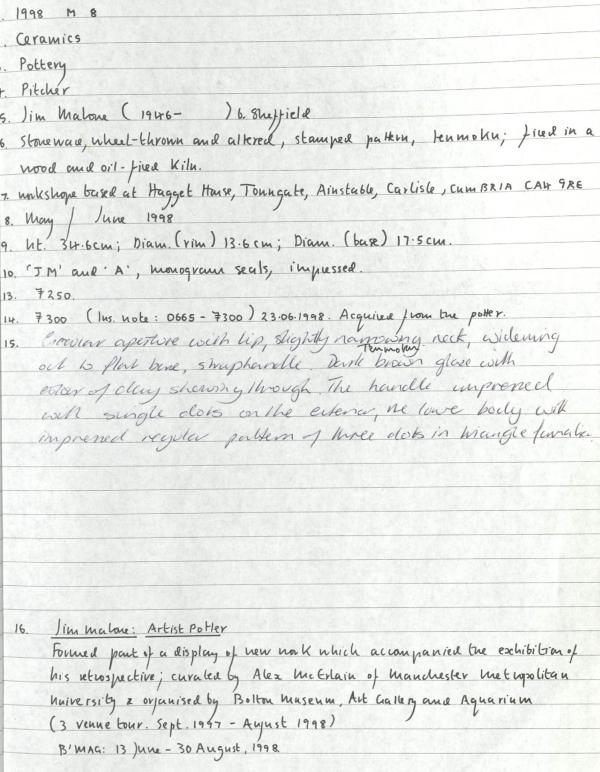 . 1998 M 8
. Ceramics
. Pottery
4. Pitcher
5. Jim Malone ( 1946- ) b. Sheffield
6. Stoneware, wheel-thrown and altered, stamped pattern, tenmoku; fired in a
wood and oil-fired kiln.
7. workshope based at Hagget House, Towngate, Ainstable, Carlisle, CUMBRIA CA4 9RE
8. May / June 1998
9. ht. 34.6cm; Diam. (rim) 13.6cm; Diam. (base) 17.5cm.
10. 'JM' and 'A', monogram seals, impressed.
13. ₹250.
14. ₹300 (Ins. note: 0665 - ₹300) 23.06.1998. Acquired from the potter.
15. Circular aperture with lip, slightly narrowing neck, widening
out to flat base, straphandle. Dark brown Tenmoku glaze with
colour of clay showing through. The handle impressed
with single dots on the exterior, the lower body with
impressed regular pattern of three dots in triangle formation.
16. Jim Malone: Artist Potter
Formed part of a display of new work which accompanied the exhibition of
his retrospective; curated by Alex McErlain of Manchester Metropolitan
University & organised by Bolton Museum, Art Gallery and Aquarium
(3 venue tour. Sept. 1997 - August 1998)
B'MAG: 13 June - 30 August, 1998